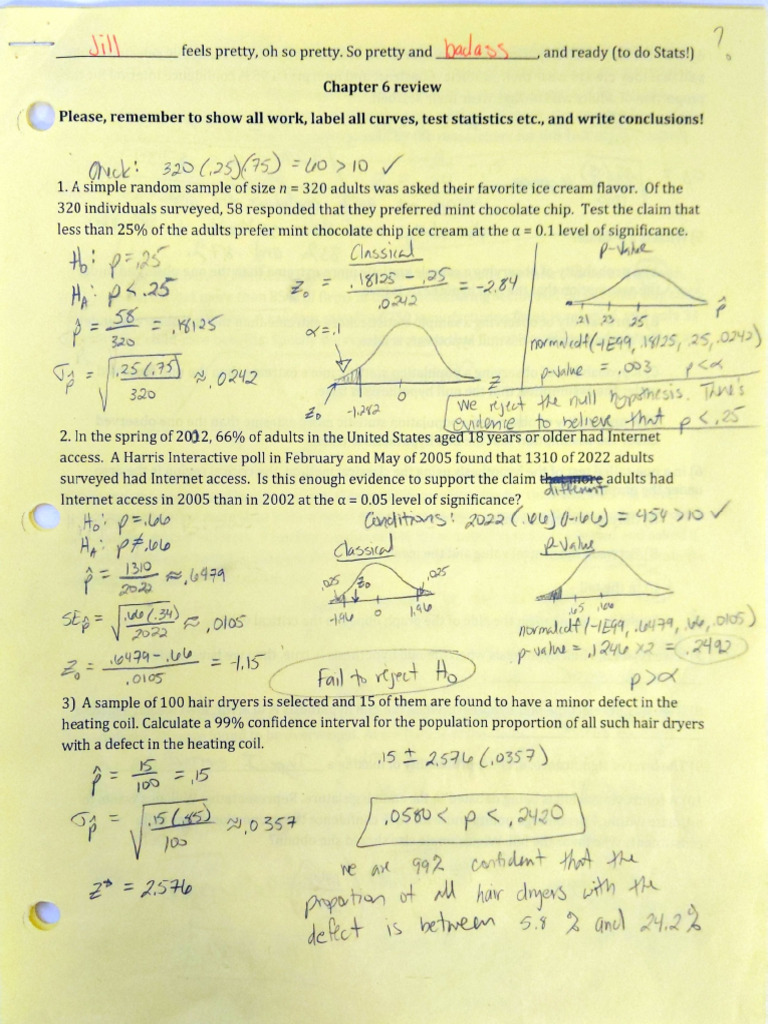 ?
Jill feels pretty, oh so pretty. So pretty and badass, and ready (to do Stats!)
Chapter 6 review
Please, remember to show all work, label all curves, test statistics etc., and write conclusions!
Check: 320(.25)(.75) = 60 > 10 ✓
1. A simple random sample of size n = 320 adults was asked their favorite ice cream flavor. Of the
320 individuals surveyed, 58 responded that they preferred mint chocolate chip. Test the claim that
less than 25% of the adults prefer mint chocolate chip ice cream at the α = 0.1 level of significance.
H₀: p = .25
Hₐ: p < .25
p̂ = 58/320 = .18125
σp̂ = √(.25(.75)/320) ≈ .0242
Classical
Z₀ = (.18125 - .25)/.0242 = -2.84
α = .1
Z₀ -1.282 0 Z
p-value
.21 .23 .25 p̂
normalcdf(-1E99, .18125, .25, .0242)
p-value = .003 p < α
We reject the null hypothesis. There's
evidence to believe that p < .25
2. In the spring of 2002, 66% of adults in the United States aged 18 years or older had Internet
access. A Harris Interactive poll in February and May of 2005 found that 1310 of 2022 adults
surveyed had Internet access. Is this enough evidence to support the claim that more adults had
different
Internet access in 2005 than in 2002 at the α = 0.05 level of significance?
H₀: p = .66
Hₐ: p ≠ .66
p̂ = 1310/2022 ≈ .6479
SEp̂ = √(.66(.34)/2022) ≈ .0105
Z₀ = (.6479 - .66)/.0105 = -1.15
Conditions: 2022(.66)(1-.66) = 454 > 10 ✓
Classical
.025 Z₀ .025
-1.96 0 1.96
p-value
.65 .66
normalcdf(-1E99, .6479, .66, .0105)
p-value = .1246 x 2 = .2492
p > α
Fail to reject H₀
3) A sample of 100 hair dryers is selected and 15 of them are found to have a minor defect in the
heating coil. Calculate a 99% confidence interval for the population proportion of all such hair dryers
with a defect in the heating coil.
p̂ = 15/100 = .15
σp̂ = √(.15(.85)/100) ≈ .0357
Z* = 2.576
.15 ± 2.576(.0357)
.0580 < p < .2420
we are 99% confident that the
proportion of all hair dryers with the
defect is between 5.8% and 24.2%